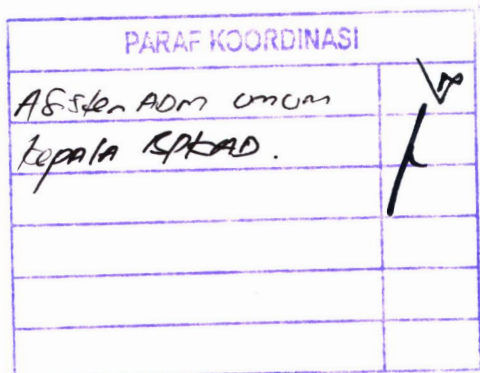 PARAF KOORDINASI
Asisten ADM Umum
Kepala BPKAD.